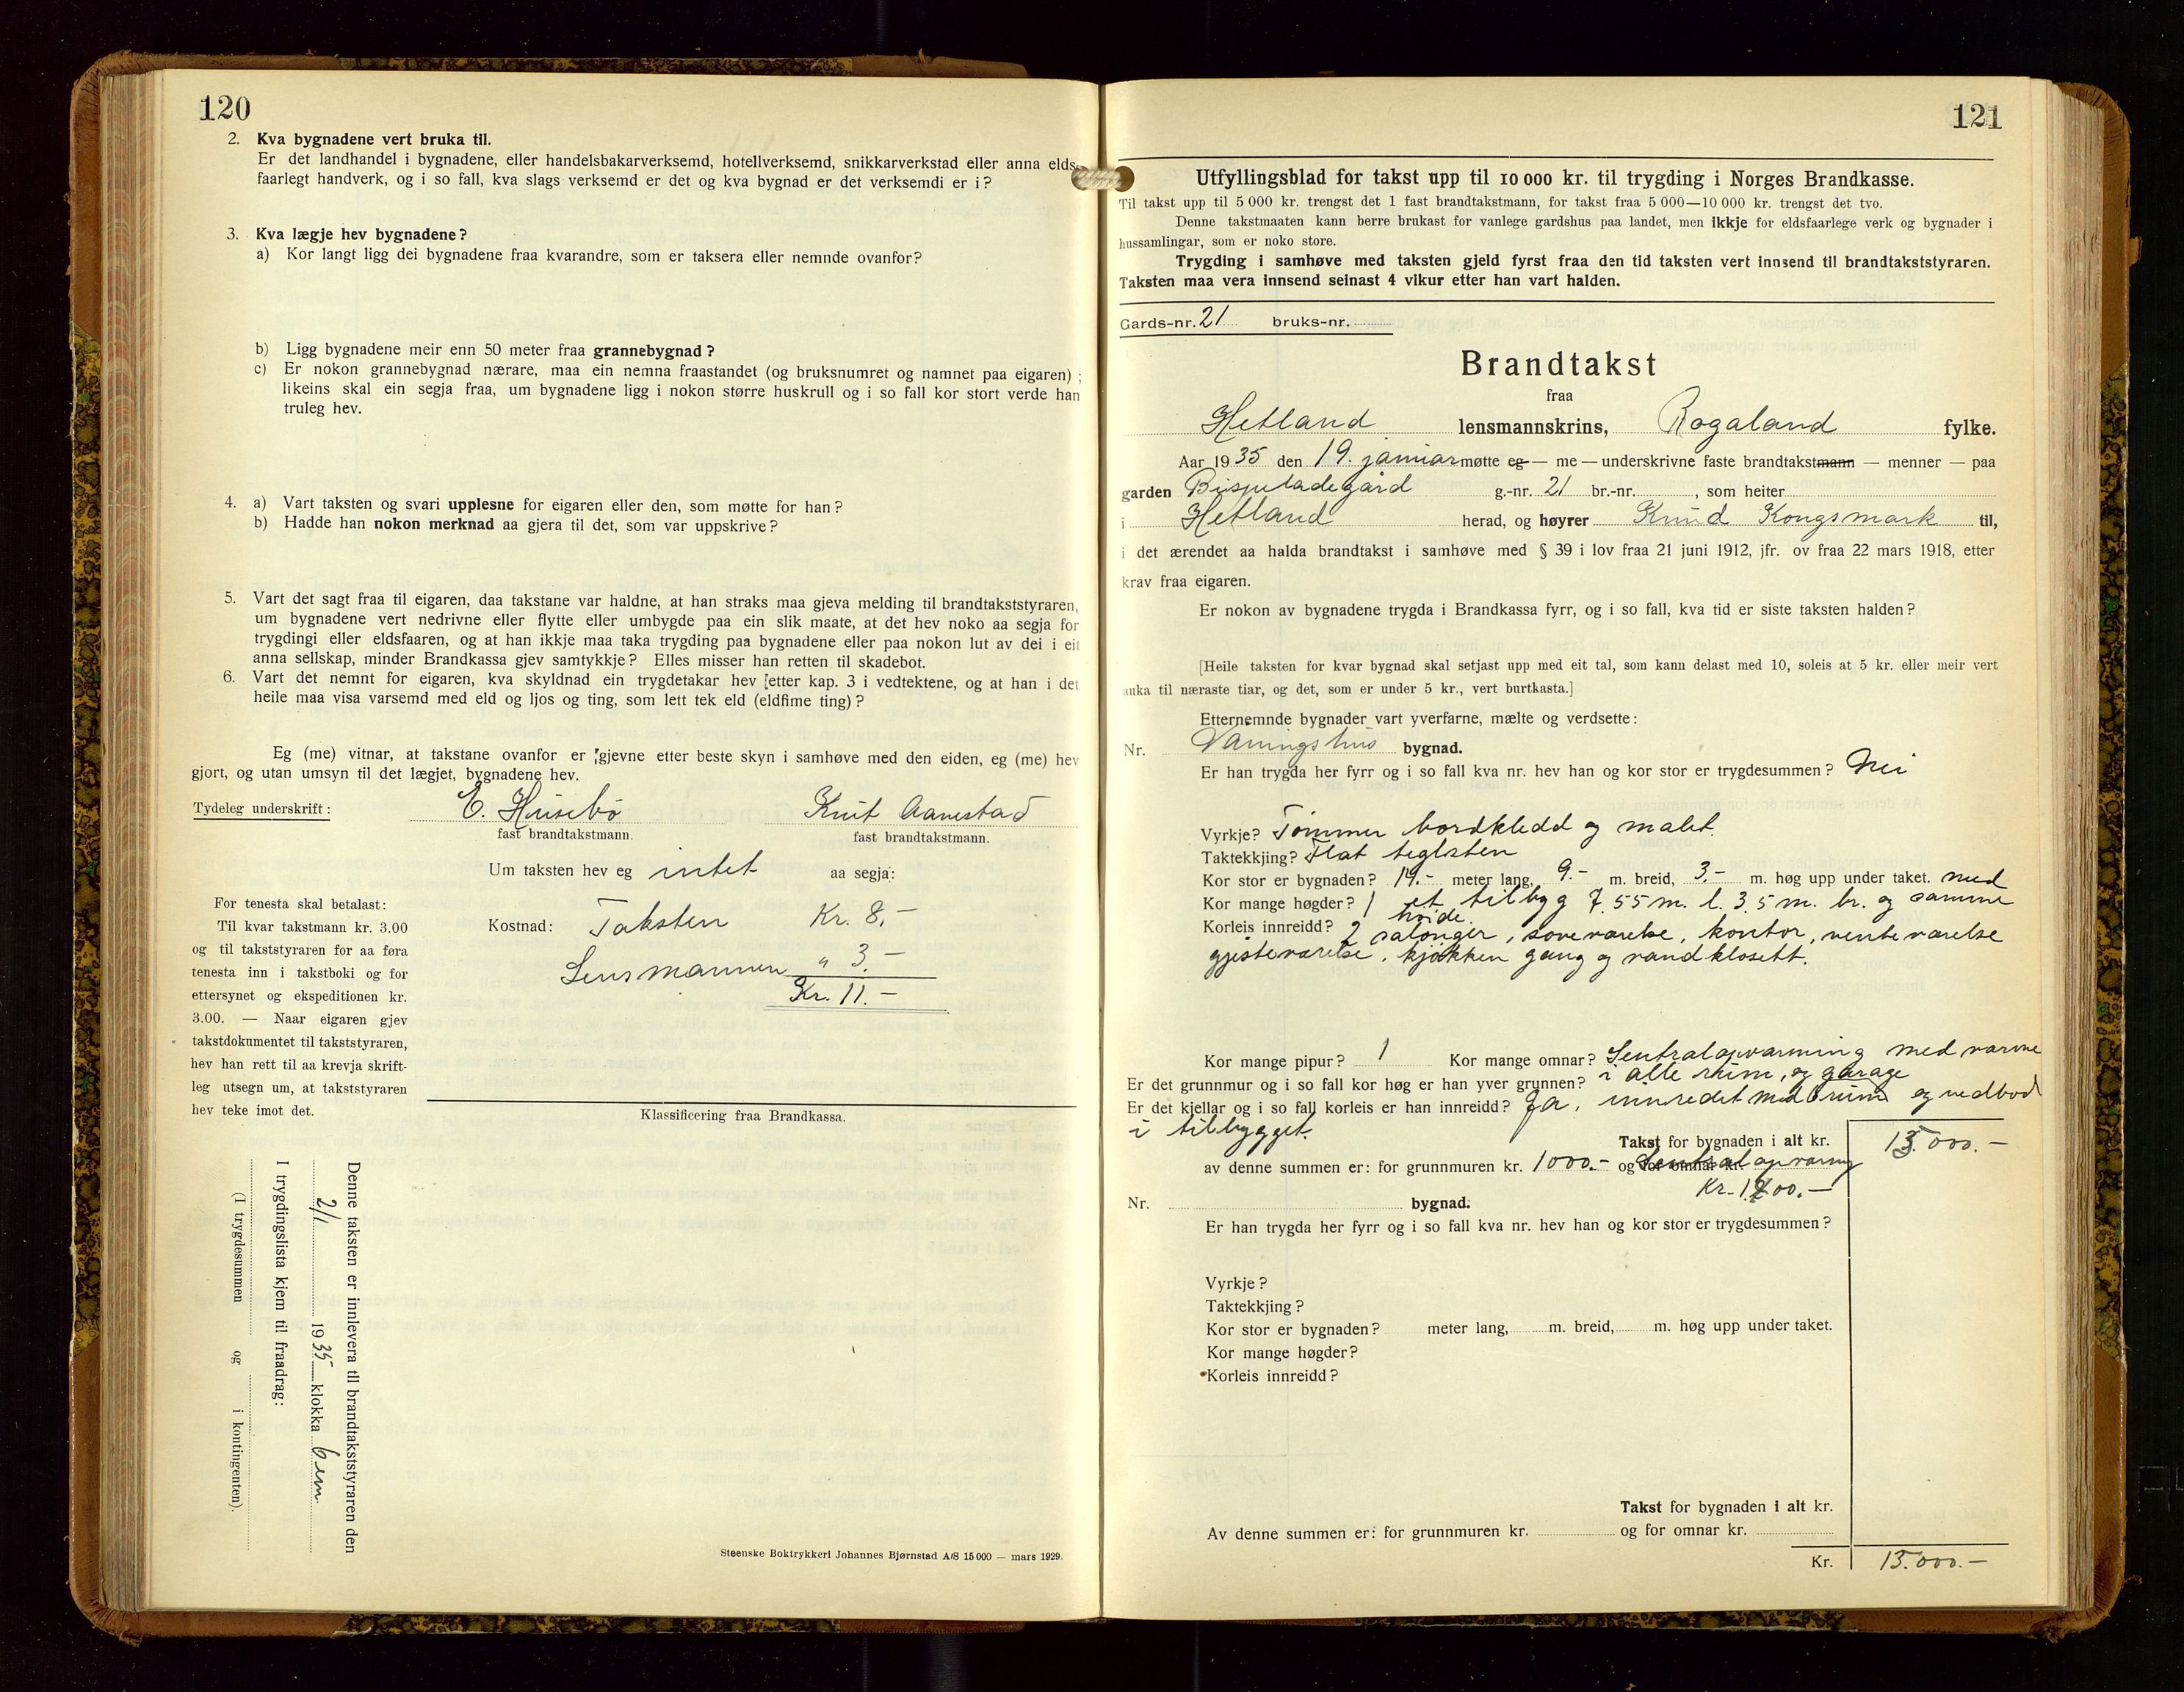 120
2. Kva bygnadene vert bruka til.
Er det landhandel i bygnadene, eller handelsbakarverksemd, hotellverksemd, snikkarverkstad eller anna elds-
faarlegt handverk, og i so fall, kva slags verksemd er det og kva bygnad er det verksemdi er i?
3. Kva lægje hev bygnadene?
a) Kor langt ligg dei bygnadene fraa kvarandre, som er taksera eller nemnde ovanfor?
b) Ligg bygnadene meir enn 50 meter fraa grannebygnad?
c) Er nokon grannebygnad nærare, maa ein nemna fraastandet (og bruksnumret og namnet paa eigaren);
likeins skal ein segja fraa, um bygnadene ligg i nokon større huskrull og i so fall kor stort verde han
truleg hev.
4. a) Vart taksten og svari upplesne for eigaren eller den, som møtte for han?
b) Hadde han nokon merknad aa gjera til det, som var uppskrive?
5. Vart det sagt fraa til eigaren, daa takstane var haldne, at han straks maa gjeva melding til brandtakststyraren,
um bygnadene vert nedrivne eller flytte eller umbygde paa ein slik maate, at det hev noko aa segja for
trygdingi eller eldsfaaren, og at han ikkje maa taka trygding paa bygnadene eller paa nokon lut av dei i eit
anna sellskap, minder Brandkassa gjev samtykkje? Elles misser han retten til skadebot.
6. Vart det nemnt for eigaren, kva skyldnad ein trygdetakar hev etter kap. 3 i vedtektene, og at han i det
heile maa visa varsemd med eld og ljos og ting, som lett tek eld (eldfime ting)?
Eg (me) vitnar, at takstane ovanfor er gjevne etter beste skyn i samhøve med den eiden, eg (me) hev
gjort, og utan umsyn til det lægjet, bygnadene hev.
Tydeleg underskrift: E. Husebø Knut Aanestad
fast brandtakstmann. fast brandtakstmann.
Um taksten hev eg intet aa segja:
Kostnad: Taksten Kr. 8,-
Lensmannen " 3.-
Kr. 11.-
For tenesta skal betalast:
Til kvar takstmann kr. 3.00
og til takststyraren for aa føra
tenesta inn i takstboki og for
ettersynet og ekspeditionen kr.
3.00. — Naar eigaren gjev
takstdokumentet til takststyraren,
hev han rett til aa krevja skrift-
leg utsegn um, at takststyraren
hev teke imot det.
Klassificering fraa Brandkassa.
Denne taksten er innlevera til brandtakststyraren den
2/1 1935 klokka 6 em.
I trygdingslista kjem til fraadrag:
(I trygdesummen og i kontingenten).
Steenske Boktrykkeri Johannes Bjørnstad A/S 15 000 — mars 1929.
121
Utfyllingsblad for takst upp til 10 000 kr. til trygding i Norges Brandkasse.
Til takst upp til 5 000 kr. trengst det 1 fast brandtakstmann, for takst fraa 5 000—10 000 kr. trengst det tvo.
Denne takstmaaten kann berre brukast for vanlege gardshus paa landet, men ikkje for eldsfaarlege verk og bygnader i
hussamlingar, som er noko store.
Trygding i samhøve med taksten gjeld fyrst fraa den tid taksten vert innsend til brandtakststyraren.
Taksten maa vera innsend seinast 4 vikur etter han vart halden.
Gards-nr. 21 bruks-nr.
Brandtakst
fraa
Hetland lensmannskrins, Rogaland fylke.
Aar 1935 den 19. januar møtte eg — me — underskrivne faste brandtakstmann — menner — paa
garden Bispeladegård g.-nr. 21 br.-nr. , som heiter
i Hetland herad, og høyrer Knud Kongsmark til,
i det ærendet aa halda brandtakst i samhøve med § 39 i lov fraa 21 juni 1912, jfr. ov fraa 22 mars 1918, etter
krav fraa eigaren.
Er nokon av bygnadene trygda i Brandkassa fyrr, og i so fall, kva tid er siste taksten halden?
[Heile taksten for kvar bygnad skal setjast upp med eit tal, som kann delast med 10, soleis at 5 kr. eller meir vert
auka til næraste tiar, og det, som er under 5 kr., vert burtkasta.]
Etternemnde bygnader vart yverfarne, mælte og verdsette:
Nr. Vaningshus bygnad.
Er han trygda her fyrr og i so fall kva nr. hev han og kor stor er trygdesummen? Nei
Vyrkje? Tømmer bordkledd og malet.
Taktekkjing? Flat teglsten
Kor stor er bygnaden? 14.- meter lang, 9.- m. breid, 3.- m. høg upp under taket. med
Kor mange høgder? 1 et tilbygg 7.55 m. l. 3.5 m. br. og samme
høide.
Korleis innreidd? 2 salonger, soveværelse, kontor, venteværelse
gjesteværelse, kjøkken gang og vandklosett.
Kor mange pipur? 1 Kor mange omnar? Sentralopvarming med varme
Er det grunnmur og i so fall kor høg er han yver grunnen? i alle rum, og garage
Er det kjellar og i so fall korleis er han innreidd? Ja, innredet med rum og vedbod
i tilbygget.
Takst for bygnaden i alt kr. 15.000.-
av denne summen er: for grunnmuren kr. 1000.- og for omnar kr. Sentralopvarmg
Kr. 1200.-
Nr. bygnad.
Er han trygda her fyrr og i so fall kva nr. hev han og kor stor er trygdesummen?
Vyrkje?
Taktekkjing?
Kor stor er bygnaden? meter lang, m. breid, m. høg upp under taket.
Kor mange høgder?
Korleis innreidd?
Takst for bygnaden i alt kr.
Av denne summen er: for grunnmuren kr. og for omnar kr.
Kr. 15.000.-